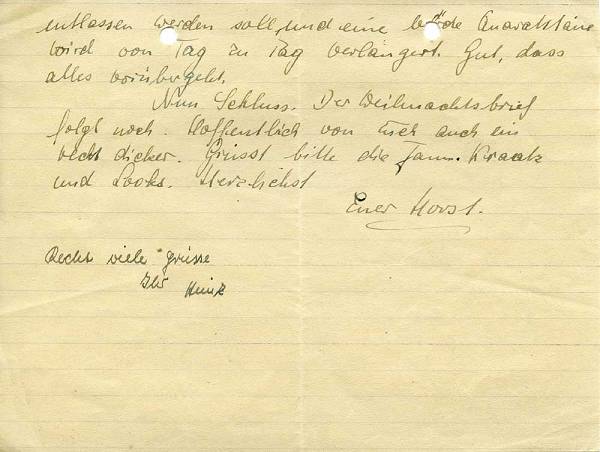 entlassen werden soll, und eine blöde Quarantäne
wird von Tag zu Tag verlängert. Gut, dass
alles vorübergeht.
Nun Schluss. Der Weihnachtsbrief
folgt noch. Hoffentlich von Euch auch ein
recht dicker. Grüsst bitte die Fam. Kraak
und Looks. Herzlichst
Euer Horst.
Recht viele Grüsse
Ihr Heinz